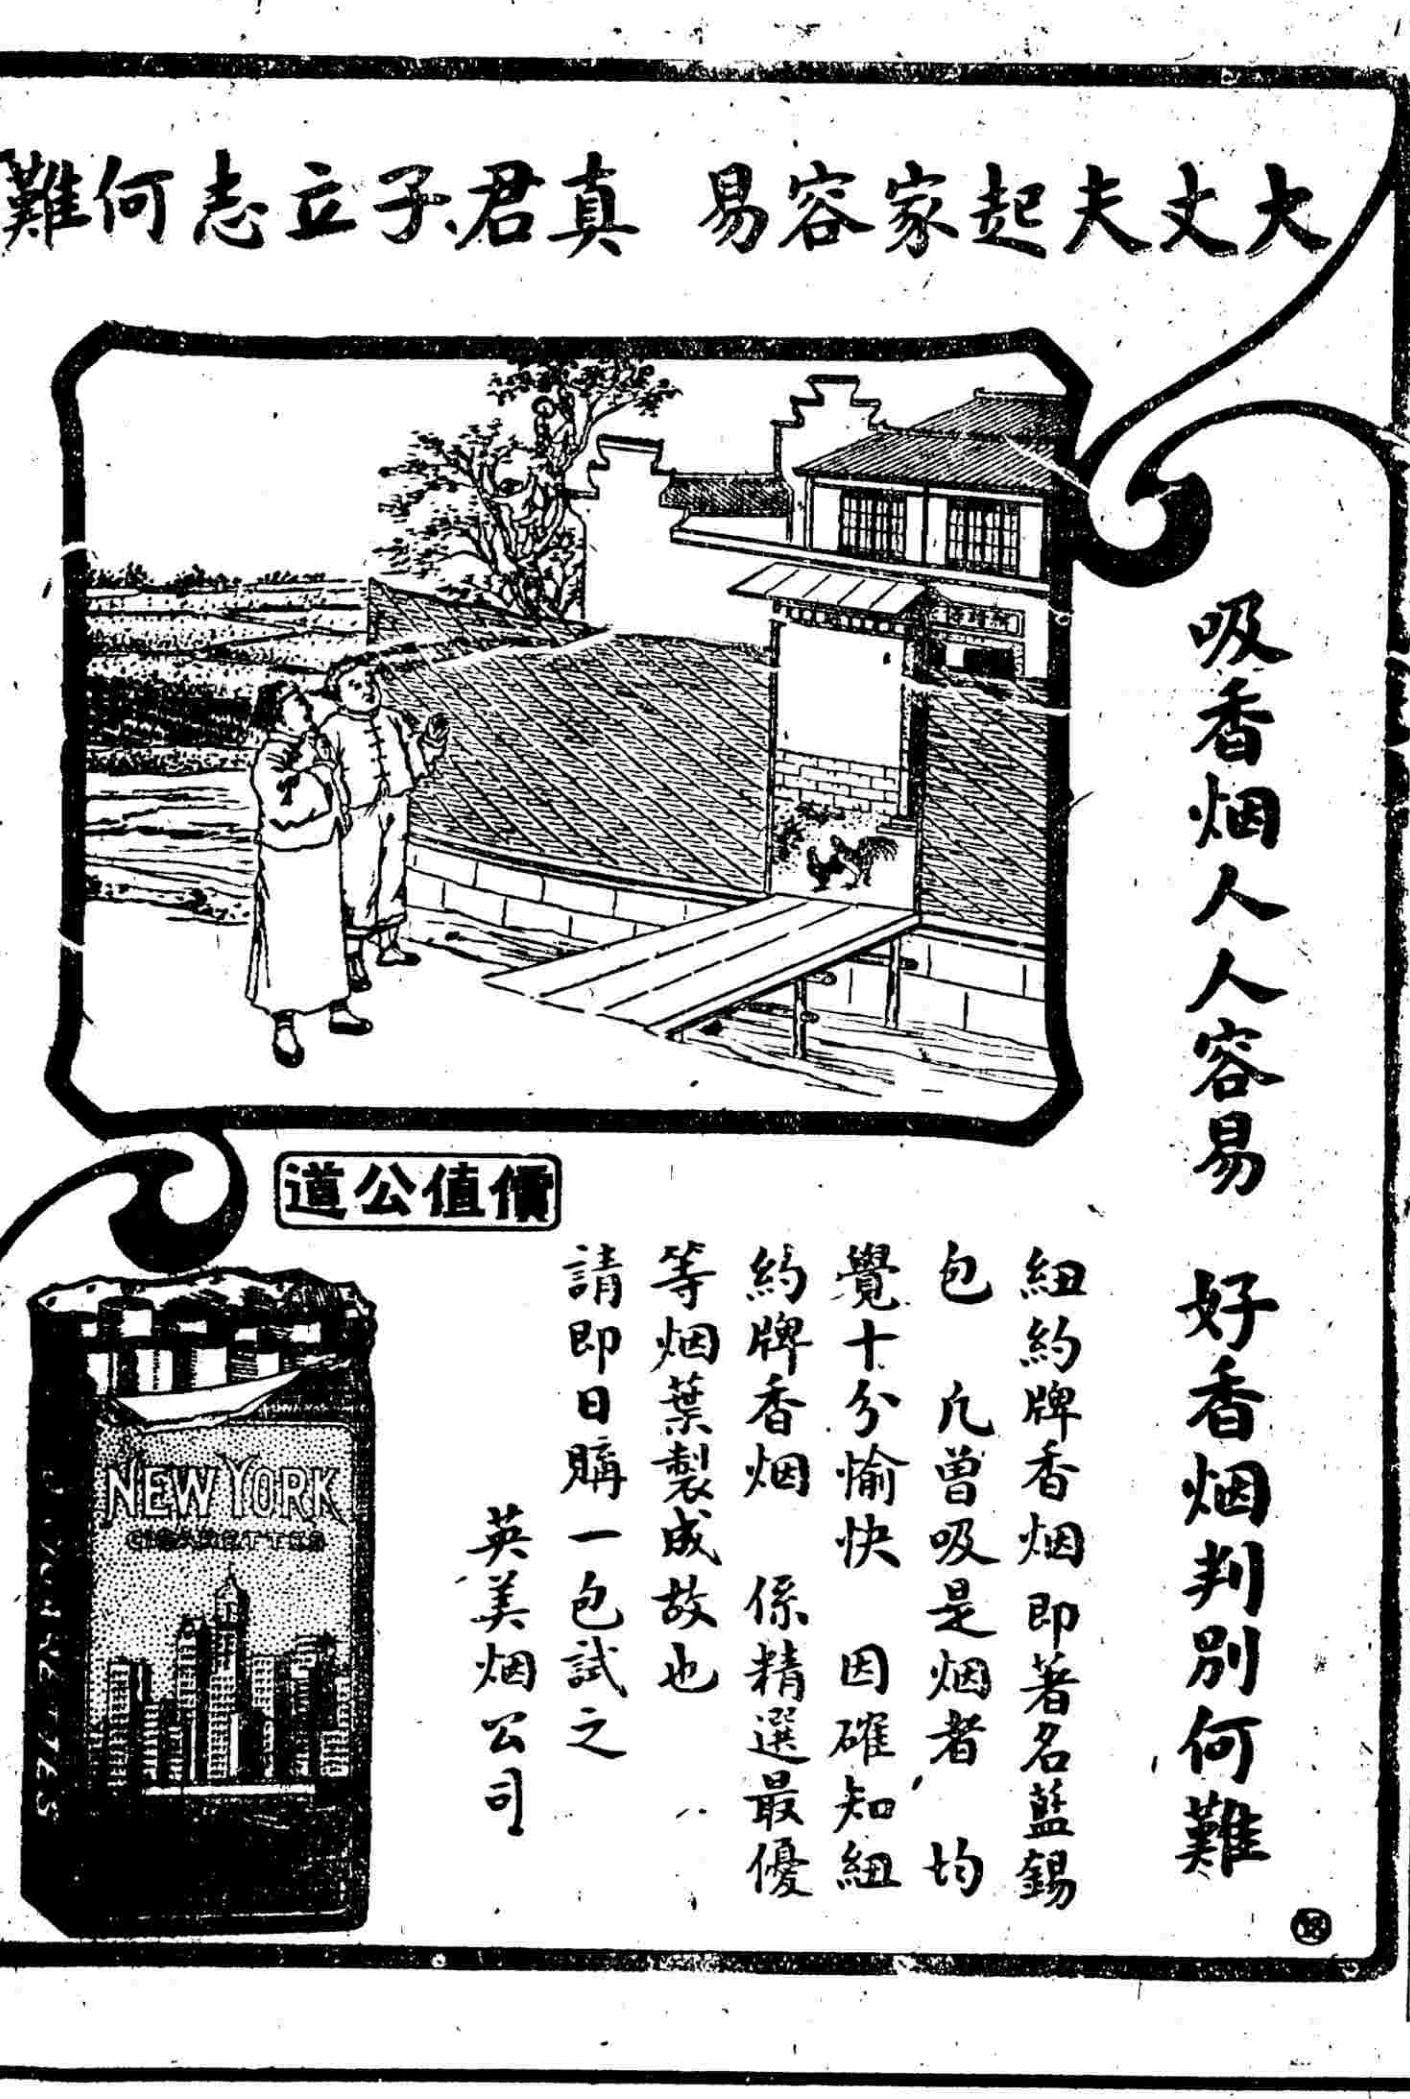 大丈夫起家容易 真君子立志何難
吸香烟人人容易 好香烟判別何難
紐約牌香烟即著名藍錫
包 凡曾吸是烟者 均
覺十分愉快 因確知紐
約牌香烟 係精選最優
等烟葉製成故也
請即日購一包試之
英美烟公司
價值公道
NEW YORK
CIGARETTES